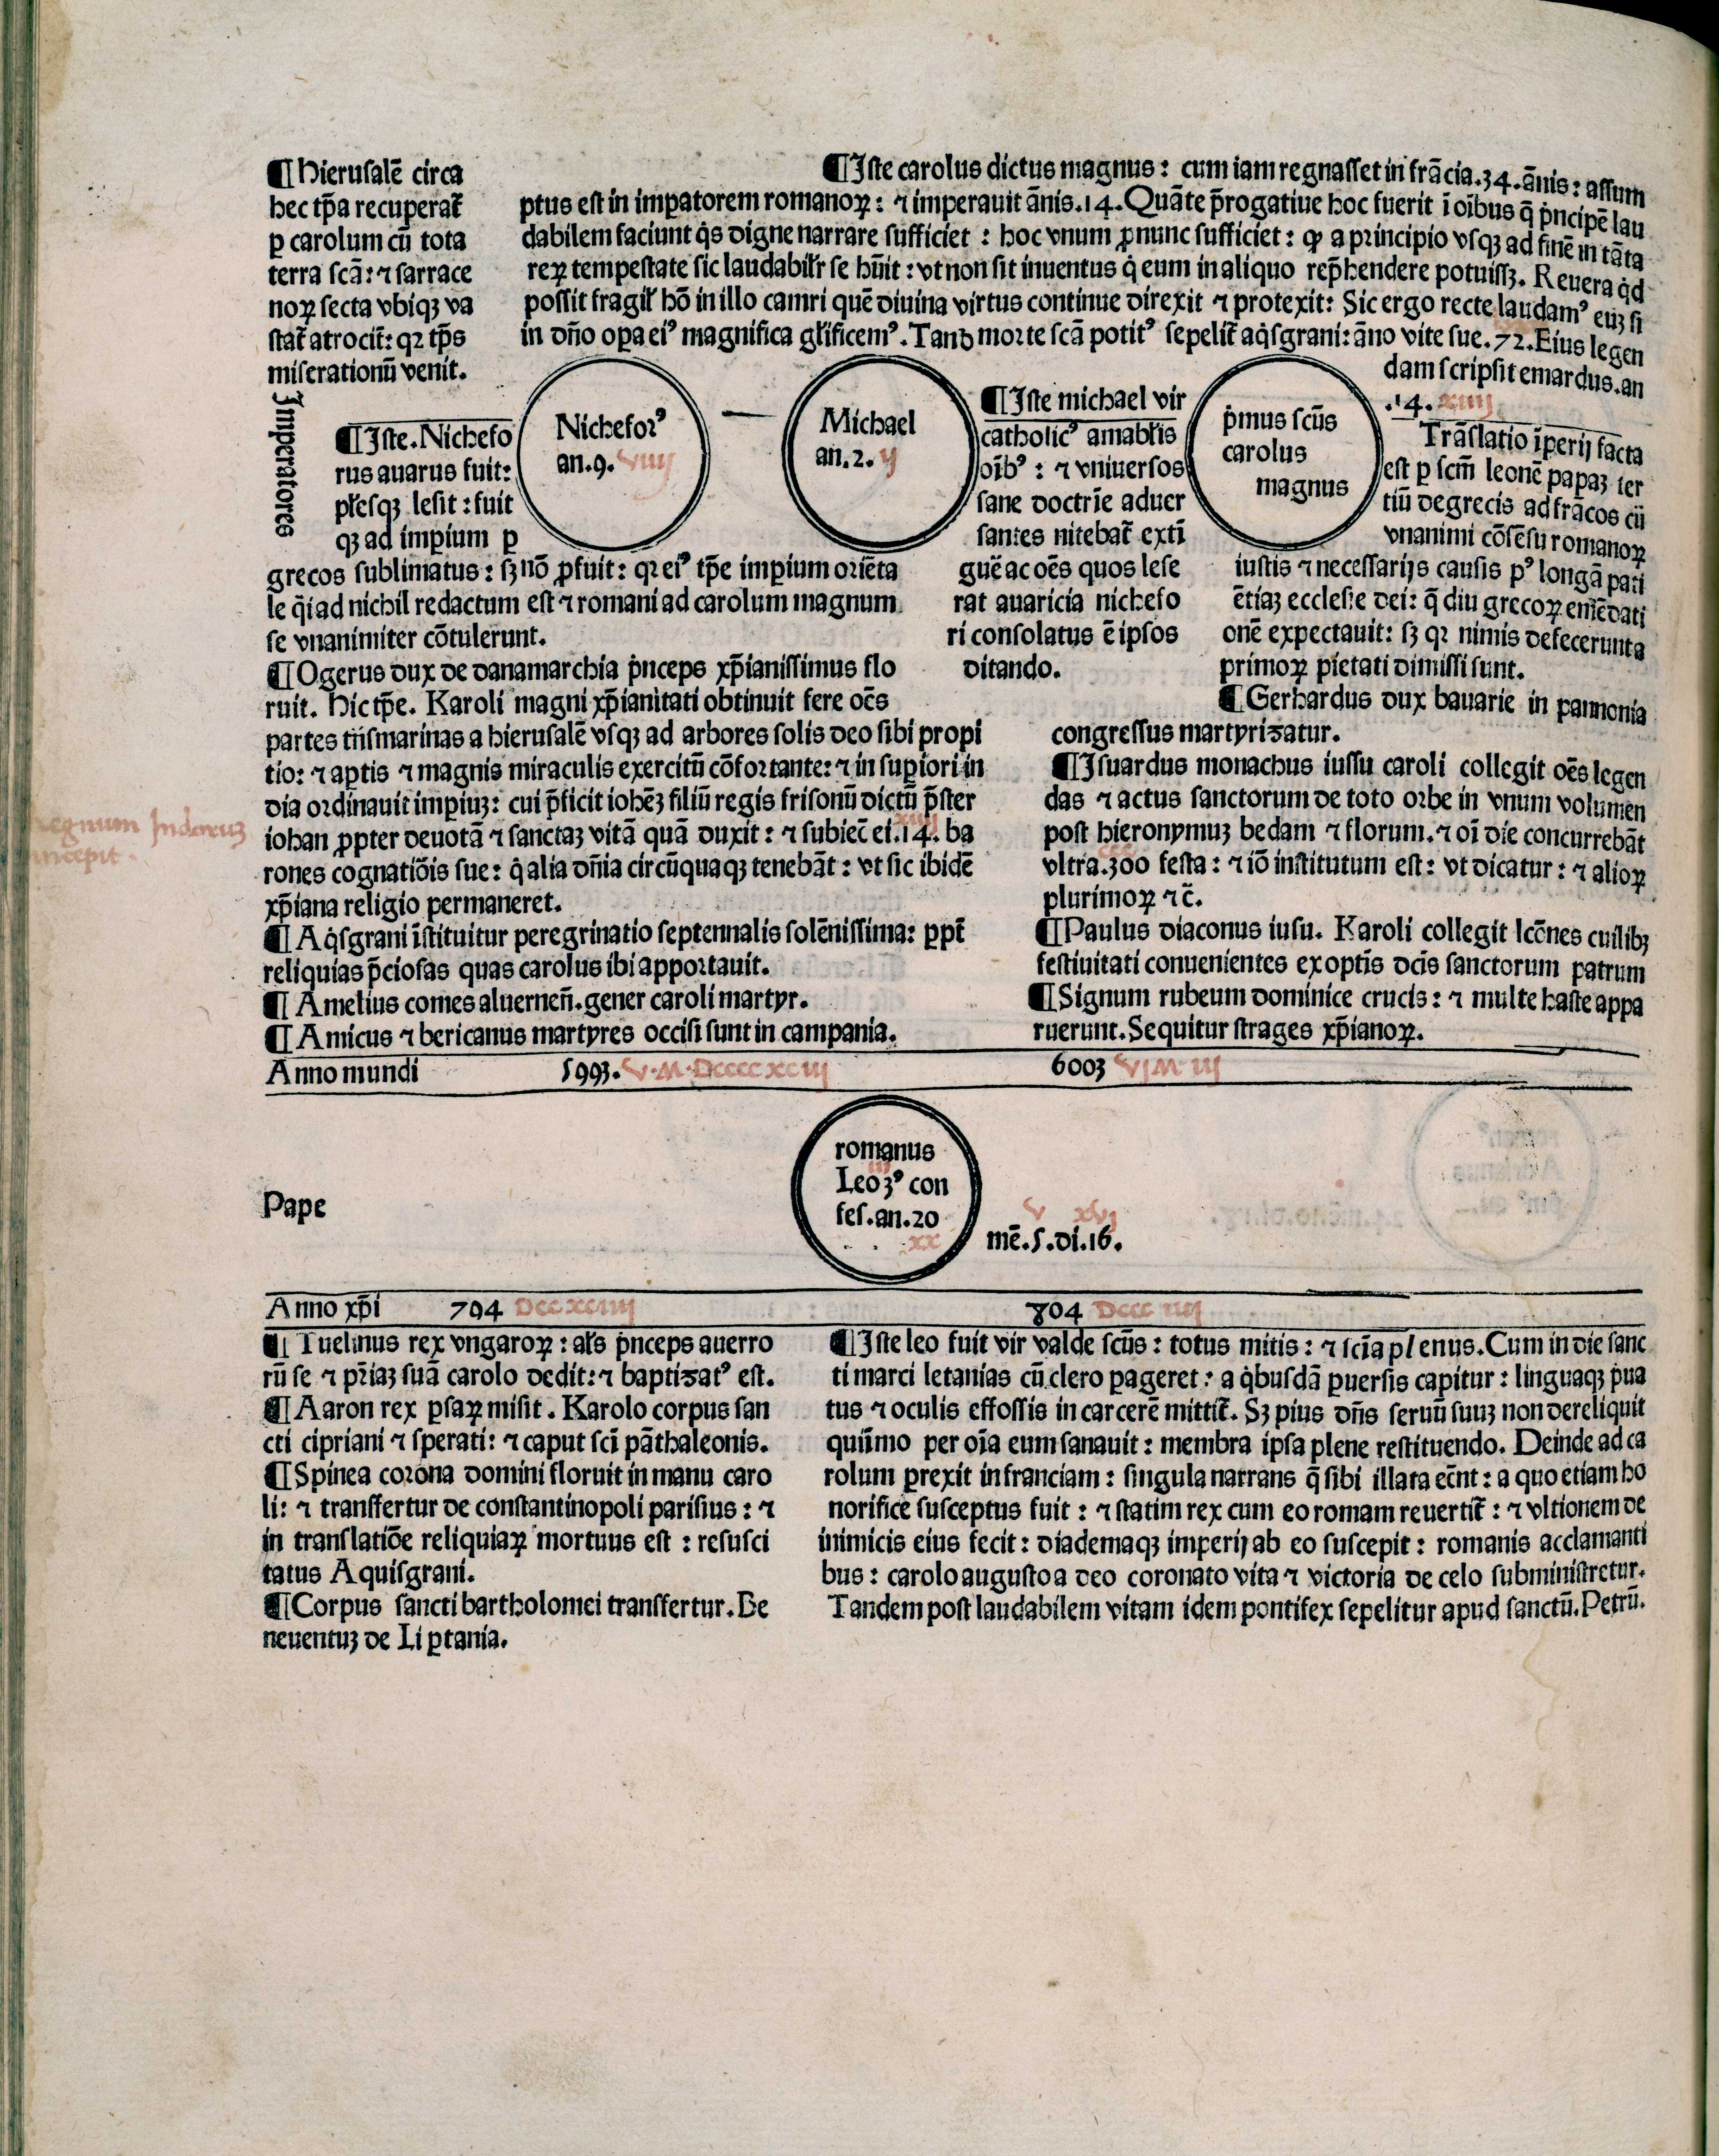 ¶Hierusalē circa
hec tp̄a recuperat̄
ꝑ carolum cū tota
terra scā: ⁊ sarrace
noꝝ secta vbiqꝫ va
stat̄ atrocit̄: qꝛ tp̄s
miserationū venit.
¶Iste carolus dictus magnus: cum iam regnasset in frācia.34.ānis: assum
ptus est in imꝑatorem romanoꝝ: ⁊ imperauit ānis.14. Quāte p̄rogatiue hoc fuerit ī oībus q̄ pͥncipē lau
dabilem faciunt qͥs digne narrare sufficiet: hoc vnum ꝓnunc sufficiet: ꝙ a principio vsqꝫ ad finē in tāta
reꝝ tempestate sic laudabilr̄ se hūit: vt non sit inuentus qͥ eum in aliquo rep̄hendere potuissꝫ. Reuera qͥd
possit fragil̄ hō in illo camri quē diuina virtus continue direxit ⁊ protexit: Sic ergo recte laudamꝰ euꝫ si
in dn̄o oꝑa eiꝰ magnifica gl̄ificemꝰ. Tand morte scā potitꝰ sepelit̄ aqͥsgrani: āno vite sue.72. Eius legen
dam scripsit emardus. an
.14. xiiij
Imperatores
¶Iste. Nichefo
rus auarus fuit:
pl̄esqꝫ lesit: fuit
qꝫ ad imꝑium ꝑ
grecos sublimatus: sꝫ nō ꝓfuit: qꝛ eiꝰ tp̄e imꝑium oriēta
le qͥ ad nichil redactum est ⁊ romani ad carolum magnum
se vnanimiter cōtulerunt.
Nicheforꝰ
an.9. viiij
Michael
an.2. ij
¶Iste michael vir
catholicꝰ amabl̄is
oībꝰ: ⁊ vniuersos
sane doctrīe aduer
santes nitebat̄ extī
guē ac oēs quos lese
rat auaricia nichefo
ri consolatus ē ipsos
ditando.
pͥmus scūs
carolus
magnus
Trāslatio īperij facta
est ꝑ scm̄ leonē papaꝫ ter
tiū de grecis ad frācos cū
vnanimi cōsēsu romanoꝝ
iustis ⁊ necessarijs causis pꝰ longā pati
ētiaꝫ ecclesie dei: q̄ diu grecoꝝ emēdati
onē expectauit: sꝫ qꝛ nimis defecerunt a
primoꝝ pietati dimissi sunt.
¶Ogerus dux de danamarchia pͥnceps xp̄ianissimus flo
ruit. Hic tp̄e. Karoli magni xp̄ianitati obtinuit fere oēs
partes trn̄smarinas a hierusalē vsqꝫ ad arbores solis deo sibi propi
tio: ⁊ aptis ⁊ magnis miraculis exercitū cōfortante: ⁊ in suꝑiori in
dia ordinauit imꝑiuꝫ: cui p̄ficit iohēꝫ filiū regis frisonū dictū p̄ster
iohan ꝓpter deuotā ⁊ sanctaꝫ vitā quā duxit: ⁊ subiec̄ ei.14. ba
xiiij
rones cognatiōis sue: qͥ alia dn̄ia circūquaqꝫ tenebāt: vt sic ibidē
xp̄iana religio permaneret.
regnum Indorum
incepit.
¶Aqͥsgrani īstituitur peregrinatio septennalis solēnissima: ꝓpt̄
reliquias p̄ciosas quas carolus ibi apportauit.
¶Amelius comes aluernen̄. gener caroli martyr.
¶Amicus ⁊ bericanus martyres occisi sunt in campania.
¶Gerhardus dux bauarie in pannonia
congressus martyrizatur.
¶Isuardus monachus iussu caroli collegit oēs legen
das ⁊ actus sanctorum de toto orbe in vnum volumen
post hieronymuꝫ bedam ⁊ florum. ⁊ oī die concurrebāt
vltra.300 festa: ⁊ iō institutum est: vt dicatur: ⁊ alioꝝ
ccc
plurimoꝝ ⁊c̄.
¶Paulus diaconus iusu. Karoli collegit lcōnes cuilibꝫ
festiuitati conuenientes ex optīs dcīs sanctorum patrum
¶Signum rubeum dominice crucis: ⁊ multe haste appa
ruerunt. Sequitur strages xp̄ianoꝝ.
Anno mundi 5993. V.M.DCCCCXCIIJ 6003 VJM IIJ
Pape
romanus
Leo 3ꝰ con
iii
fes. an. 20
xx
mē.5.di.16.
v xvj
Anno xp̄i 794 DCCXCIIIJ 804 DCCC IIIJ
¶Tuelinus rex vngaroꝝ: al̄s pͥnceps auerro
rū se ⁊ pr̄iaꝫ suā carolo dedit: ⁊ baptizatꝰ est.
¶Aaron rex ꝑsaꝝ misit. Karolo corpus san
cti cipriani ⁊ sperati: ⁊ caput scī pāthaleonis.
¶Spinea corona domini floruit in manu caro
li: ⁊ transfertur de constantinopoli parisius: ⁊
in translatiōe reliquiaꝝ mortuus est: resusci
tatus Aquisgrani.
¶Corpus sancti bartholomei transfertur. Be
neuentuꝫ de Liꝑtania.
¶Iste leo fuit vir valde scūs: totus mitis: ⁊ scīa plenus. Cum in die sanc
ti marci letanias cū clero ꝑageret: a qͥbusdā ꝑuersis capitur: linguaqꝫ pͥua
tus ⁊ oculis effossis in carcerē mittit̄. Sꝫ pius dn̄s seruū suuꝫ non dereliquit
quiīmo per oīa eum sanauit: membra ipsa plene restituendo. Deinde ad ca
rolum ꝑrexit in franciam: singula narrans q̄ sibi illata ec̄nt: a quo etiam ho
norifice susceptus fuit: ⁊ statim rex cum eo romam reuertit̄: ⁊ vltionem de
inimicis eius fecit: diademaqꝫ imperij ab eo suscepit: romanis acclamanti
bus: carolo augusto a deo coronato vita ⁊ victoria de celo subministretur.
Tandem post laudabilem vitam idem pontifex sepelitur apud sanctū. Petrū.